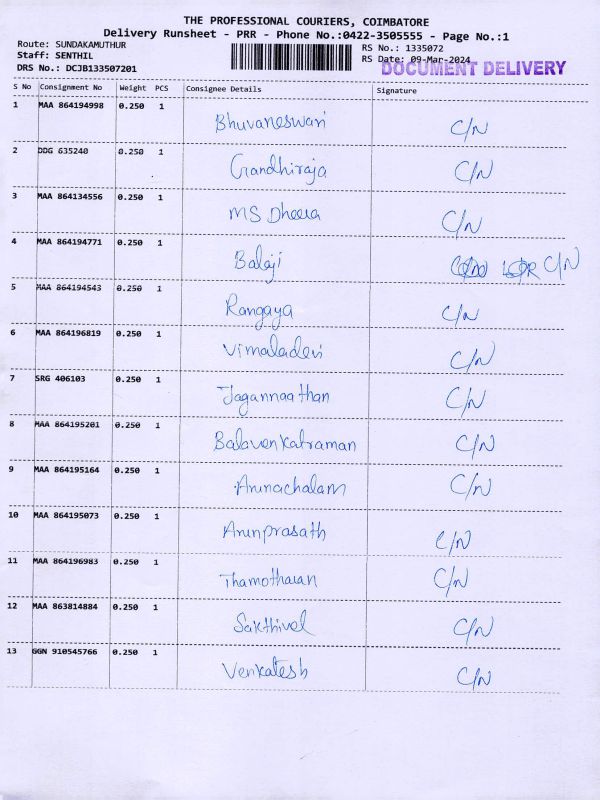 THE PROFESSIONAL COURIERS, COIMBATORE
Delivery Runsheet - PRR - Phone No.:0422-3505555 - Page No.:1
Route: SUNDAKAMUTHUR RS No.: 1335072
Staff: SENTHIL RS Date: 09-Mar-2024
DRS No.: DCJB133507201 DOCUMENT DELIVERY
S No Consignment No Weight PCS Consignee Details Signature
1 MAA 864194998 0.250 1 Bhuvaneswari C/N
2 DDG 635240 0.250 1 Gandhiraja C/N
3 MAA 864134556 0.250 1 MS Dheera C/N
4 MAA 864194771 0.250 1 Balaji C/N
5 MAA 864194543 0.250 1 Rangaya C/N
6 MAA 864196819 0.250 1 Vimaladevi C/N
7 SRG 406103 0.250 1 Jagannaathan C/N
8 MAA 864195201 0.250 1 Balavenkatraman C/N
9 MAA 864195164 0.250 1 Arunachalam C/N
10 MAA 864195073 0.250 1 Arunprasath C/N
11 MAA 864196983 0.250 1 Thamotharan C/N
12 MAA 863814884 0.250 1 Sakthivel C/N
13 GGN 910545766 0.250 1 Venkatesh C/N